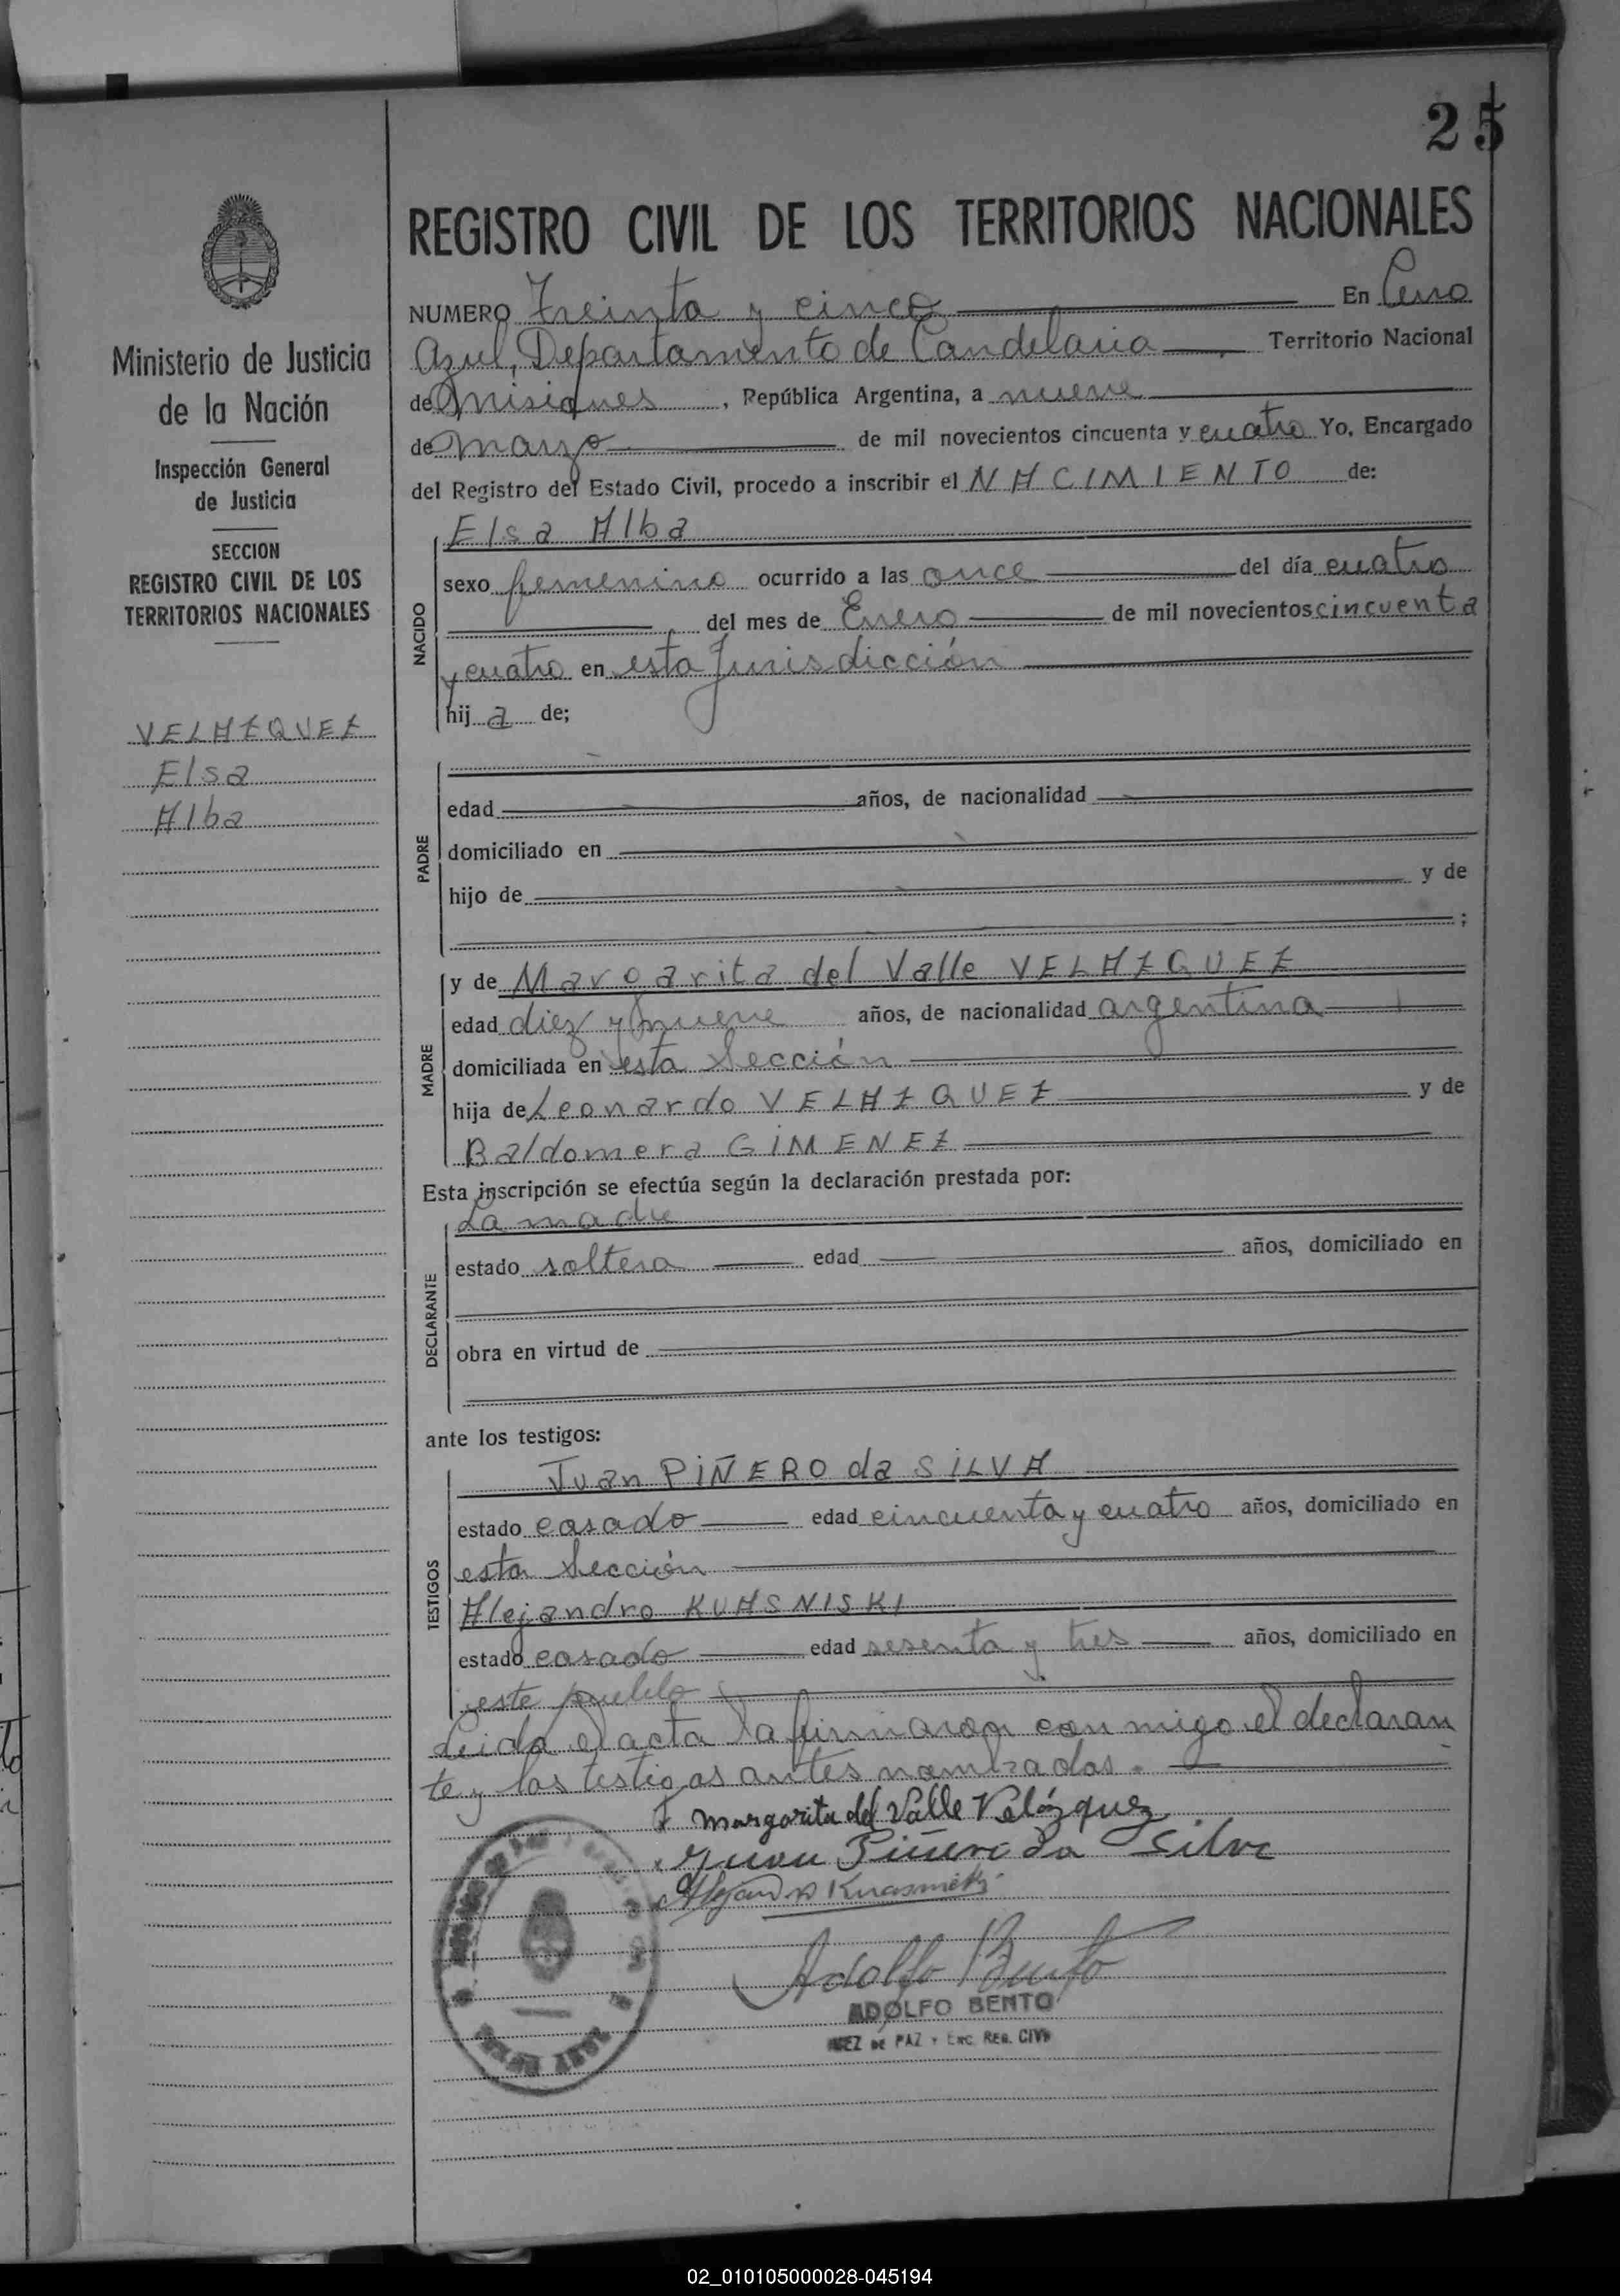 25
REGISTRO CIVIL DE LOS TERRITORIOS NACIONALES
Ministerio de Justicia
de la Nación
Inspección General
de Justicia
SECCION
REGISTRO CIVIL DE LOS
TERRITORIOS NACIONALES
VELAZQUEZ
Elsa
Alba
NUMERO Treinta y cinco En Cerro
Azul, Departamento de Candelaria Territorio Nacional
de Misiones, República Argentina, a nueve
de Marzo de mil novecientos cincuenta y cuatro Yo, Encargado
del Registro del Estado Civil, procedo a inscribir el NACIMIENTO de:
NACIDO
Elsa Alba
sexo femenino ocurrido a las once del día cuatro
del mes de Enero de mil novecientos cincuenta
y cuatro en esta Jurisdicción
hij a de;
PADRE
edad años, de nacionalidad
domiciliado en
hijo de y de
;
MADRE
y de Margarita del Valle VELAZQUEZ
edad diez y nueve años, de nacionalidad argentina
domiciliada en esta Sección
hija de Leonardo VELAZQUEZ y de
Baldomera GIMENEZ
Esta inscripción se efectúa según la declaración prestada por:
DECLARANTE
La madre
estado soltera edad años, domiciliado en
obra en virtud de
ante los testigos:
TESTIGOS
Juan PIÑERO da SILVA
estado casado edad cincuenta y cuatro años, domiciliado en
esta Sección
Alejandro KUASNISKI
estado casado edad sesenta y tres años, domiciliado en
este pueblo
Leida el acta la firmaron con migo el declaran
te y los testigos antes nombrados.
Margarita del Valle Velázquez
Juan Piñero da Silva
Alejandro Kuasniski
Adolfo Bento
ADOLFO BENTO
JUEZ DE PAZ Y ENC. REG. CIVIL
02_010105000028-045194